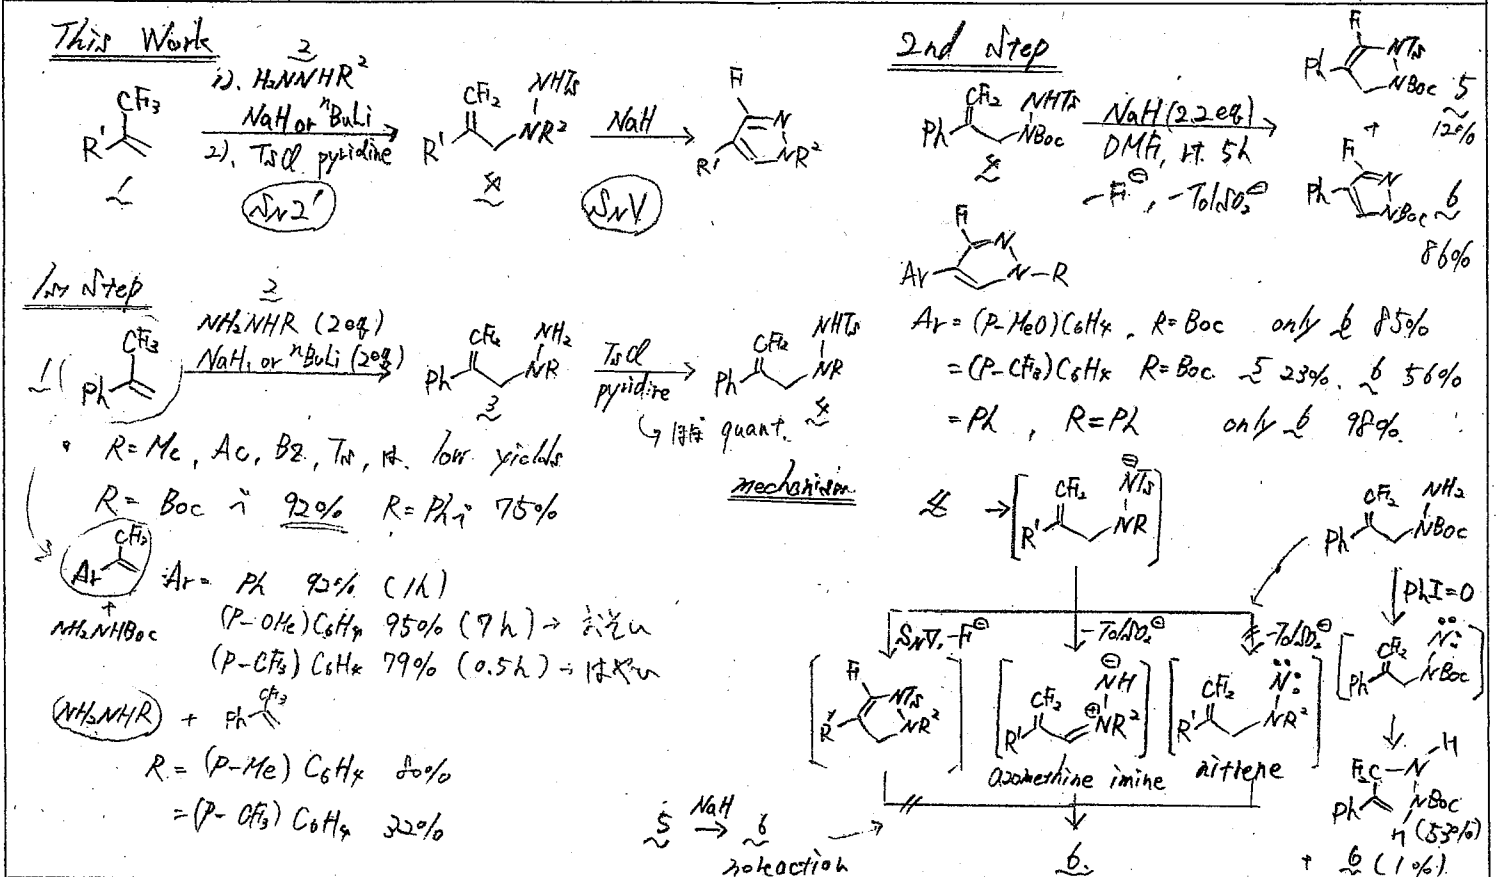 This Work
2
1). H₂NNHR²
NaH or ⁿBuLi
2). TsCl pyridine
CF₃
R'
1
SN2'
CF₂ NHTs
R' NR²
4
NaH
SNV
F
N
R' NR²
1st Step
2
NH₂NHR (2eq)
NaH, or ⁿBuLi (2eq)
1 ( Ph CF₃ )
CF₂ NH₂
Ph NR
3
TsCl
pyridine
→ ほぼ quant.
CF₂ NHTs
Ph NR
4
• R=Me, Ac, Bz, Ts, は. low yields
R= Boc で 92% R=Phで 75%
CF₃
Ar
+
NH₂NHBoc
Ar= Ph 92% (1h)
(P-OMe)C₆H₄ 95% (7h) → おそい
(P-CF₃)C₆H₄ 79% (0.5h) → はやい
NH₂NHR + Ph CF₃
R = (P-Me) C₆H₄ 80%
= (P-CF₃) C₆H₄ 32%
2nd Step
CF₂ NHTs
Ph NBoc
4
NaH (2.2eq)
DMF, rt. 5h
-F⊖, -TolSO₂⊖
F
NTs
Ph NBoc 5
12%
+
F
N
Ph NBoc 6
86%
F
N
Ar N-R
Ar= (P-MeO)C₆H₄, R=Boc only 6 85%
= (P-CF₃)C₆H₄ R=Boc 5 23%, 6 56%
= Ph, R=Ph only 6 98%
mechanism
4 → [ CF₂ ⊖NTs R' NR ]
SNV, -F⊖
-TolSO₂⊖
-TolSO₂⊖
F
NTs
R' NR²
CF₂ ⊖NH
R' ⊕NR²
azomethine imine
CF₂ N:
R' NR²
nitrene
CF₂ NH₂
Ph NBoc
PhI=O
CF₂ N:
Ph NBoc
H
F₂C-N
Ph NBoc
7 (53%)
+ 6 (1%)
5 NaH → 6
no reaction
6.